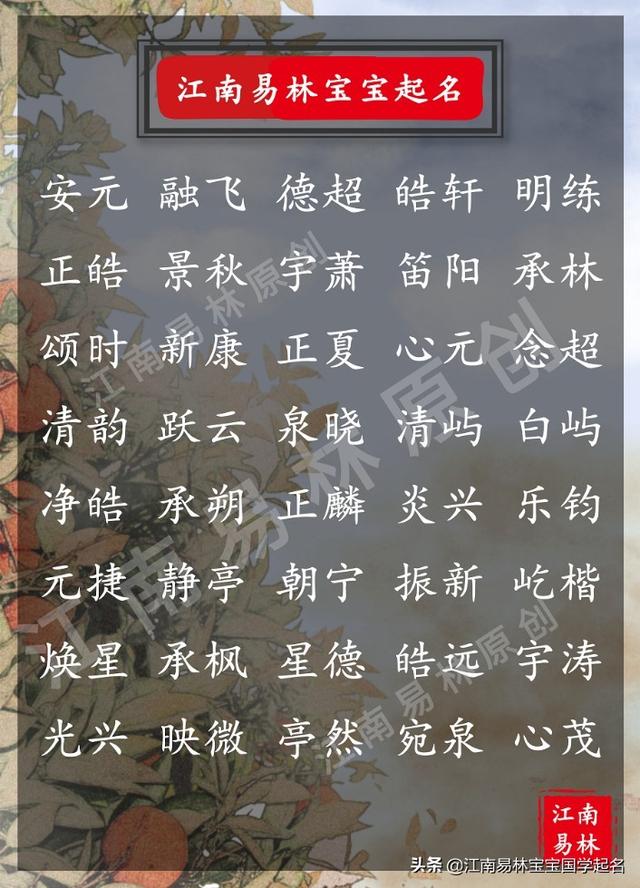 江南易林宝宝起名
安元 融飞 德超 皓轩 明练
正皓 景秋 宇萧 笛阳 承林
颂时 新康 正夏 心元 念超
清韵 跃云 泉晓 清屿 白屿
净皓 承朔 正麟 炎兴 乐钧
元捷 静亭 朝宁 振新 屹楷
焕星 承枫 星德 皓远 宇涛
光兴 映微 亭然 宛泉 心茂
江南易林原创
江南易林原创
江南易林原创
江南
易林
头条 @江南易林宝宝国学起名